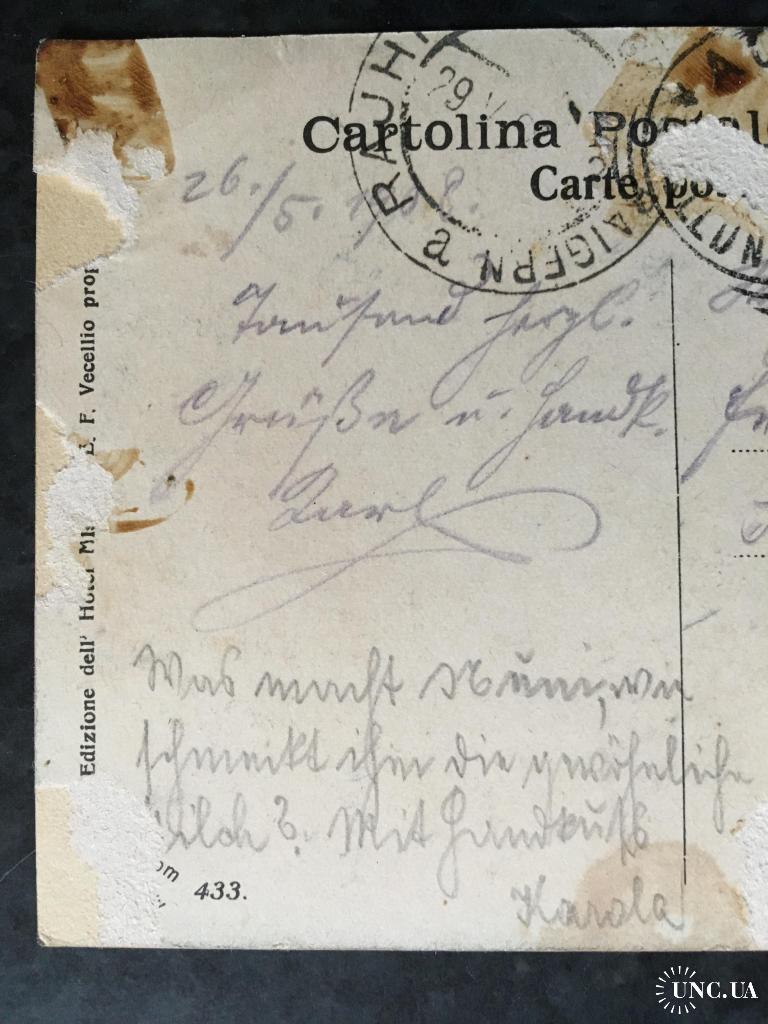 Cartolina Postale
Carte po
RAUH
RAIGERN a
29
26./5. 1908.
Tausend herzl.
Grüße u. Handk.
Karl
Was macht Muni, wie
schmeckt ihm die gewöhnliche
Milch? Mit Handkuss
Karola
Edizione dell' Hotel Mis B. F. Vecellio prop
433.
UNC.UA